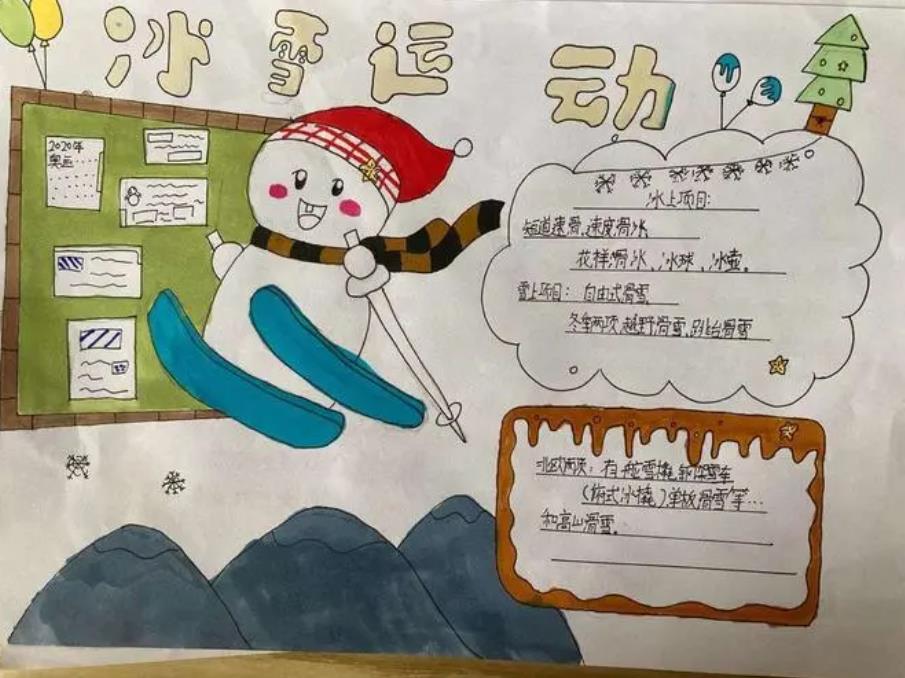 冰雪运动
2020年
奥运
冰上项目:
短道速滑、速度滑冰
花样滑冰、冰球、冰壶。
雪上项目: 自由式滑雪
冬季两项,越野滑雪,跳台滑雪
北欧两项: 有舵雪橇,钢架雪车
(俯式冰橇)单板滑雪等…
和高山滑雪。